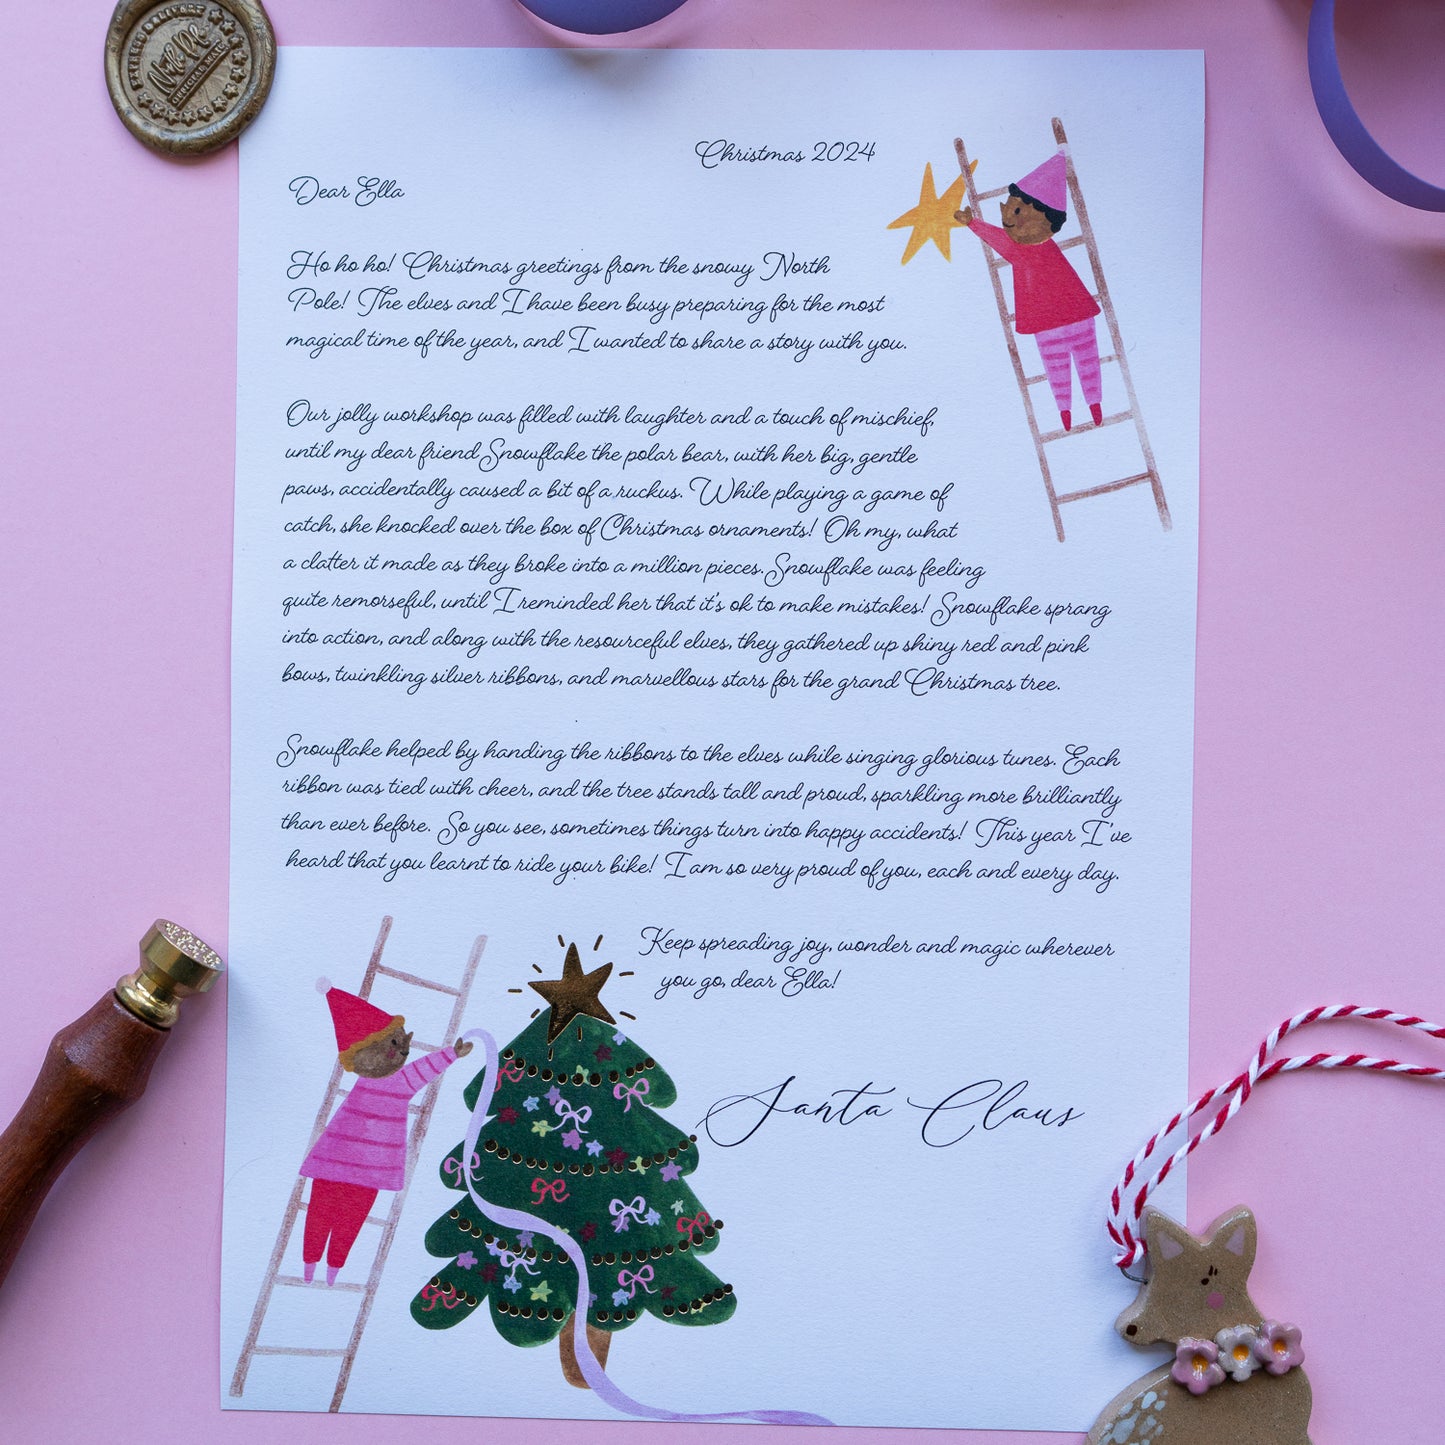 NORTH POLE
OFFICIAL MAIL
Christmas 2024
Dear Ella
Ho ho ho! Christmas greetings from the snowy North
Pole! The elves and I have been busy preparing for the most
magical time of the year, and I wanted to share a story with you.
Our jolly workshop was filled with laughter and a touch of mischief,
until my dear friend Snowflake the polar bear, with her big, gentle
paws, accidentally caused a bit of a ruckus. While playing a game of
catch, she knocked over the box of Christmas ornaments! Oh my, what
a clatter it made as they broke into a million pieces. Snowflake was feeling
quite remorseful, until I reminded her that it's ok to make mistakes! Snowflake sprang
into action, and along with the resourceful elves, they gathered up shiny red and pink
bows, twinkling silver ribbons, and marvellous stars for the grand Christmas tree.
Snowflake helped by handing the ribbons to the elves while singing glorious tunes. Each
ribbon was tied with cheer, and the tree stands tall and proud, sparkling more brilliantly
than ever before. So you see, sometimes things turn into happy accidents! This year I've
heard that you learnt to ride your bike! I am so very proud of you, each and every day.
Keep spreading joy, wonder and magic wherever
you go, dear Ella!
Santa Claus